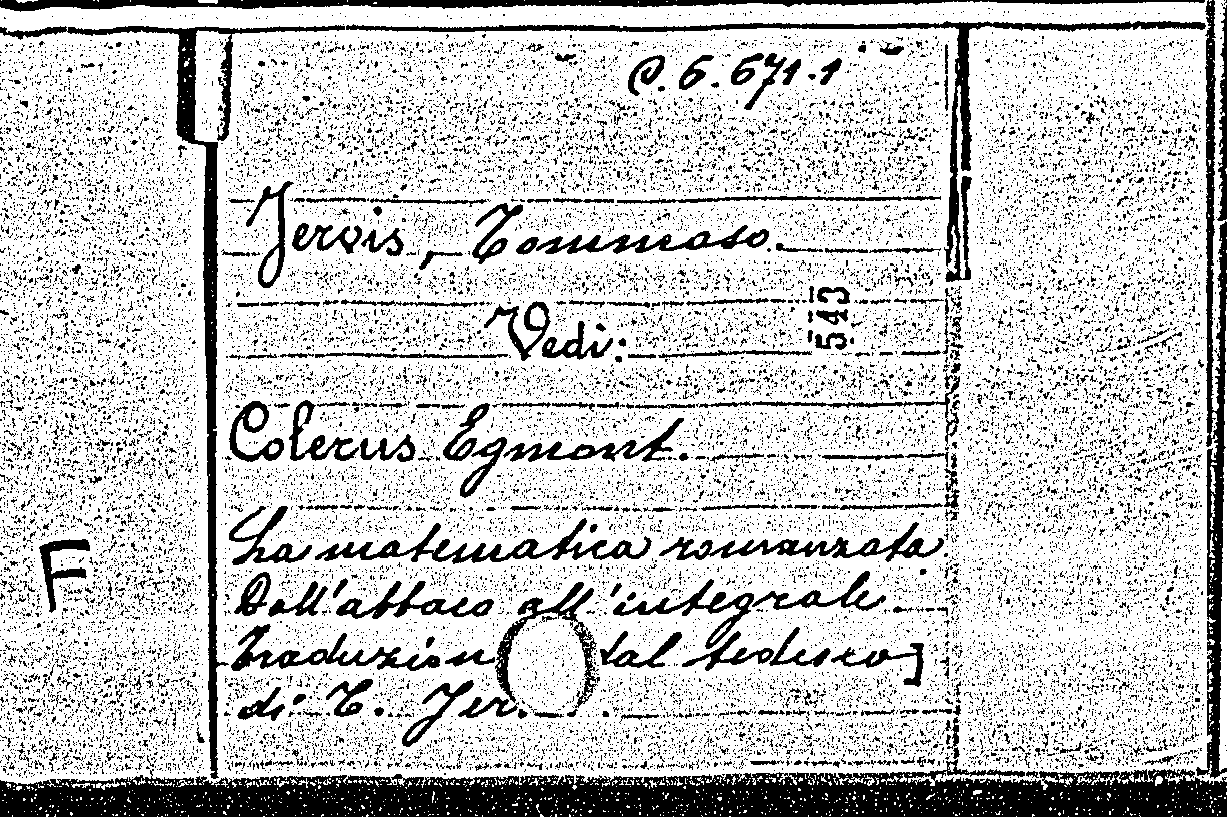 C. 6. 671.1
Jervis, Tommaso.
543
Vedi:
Colerus Egmont.
La matematica romanzata.
Dall'abbaco all'integrale.
Traduzion dal tedesco]
di T. Jer.
F